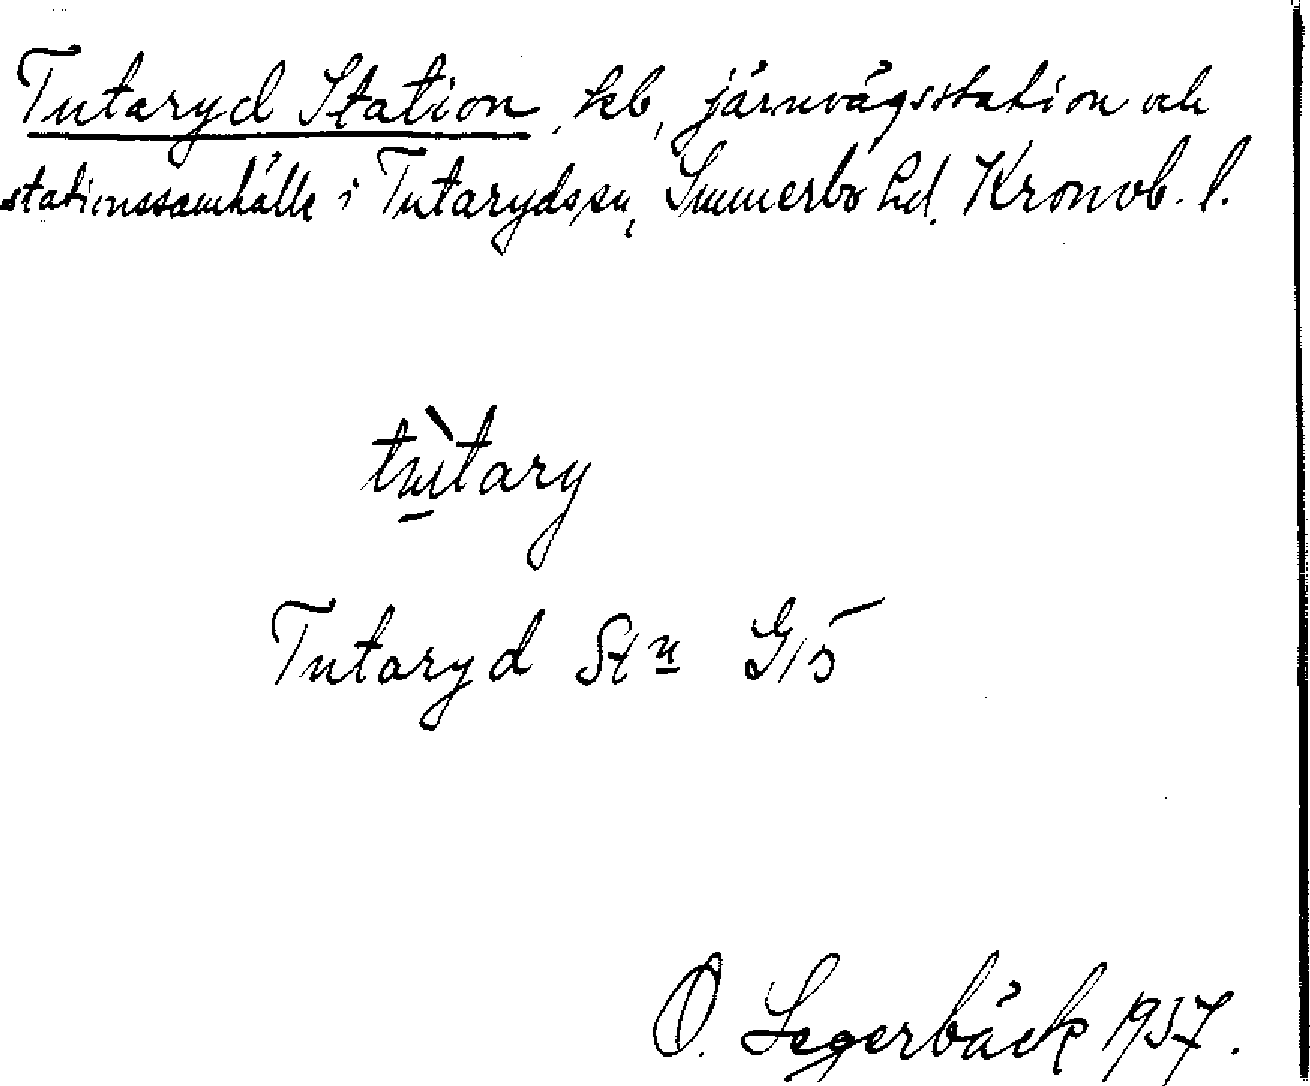 Tutaryd Station, beb, järnvägsstation och
stationssamhälle i Tutaryds sn, Sunnerbo hd, Kronob. l.
tùtary
Tutaryd Stn G15
O. Segerbäck 1937.